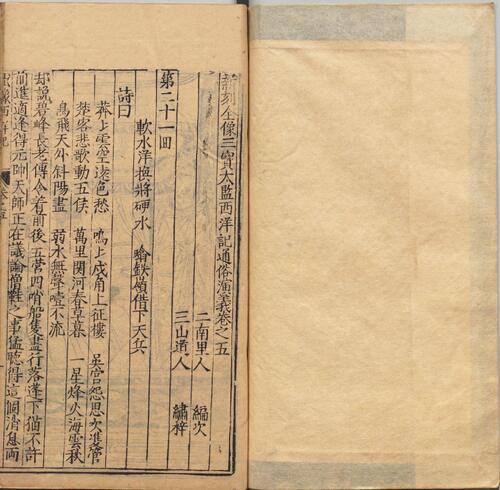 新刻全像三寶太監西洋記通俗演義卷之五
二南里人 編次
三山道人 繡梓
第二十一回
軟水洋換將硬水 吸鉄嶺借下天兵
詩曰
莽上雲空遠色愁 嗚上戍角上征樓 吳宮怨思吹雙管
楚客悲歌動五侯 萬里関河春草暮 一星烽火海雲秋
鳥飛天外斜陽盡 弱水無聲噎不流
却說碧峰長老傳令着前後五營四哨船隻盡行落篷下猫不許
前進適逢得元帥天師正在議論僧鞋之事猛聽得這個消息兩